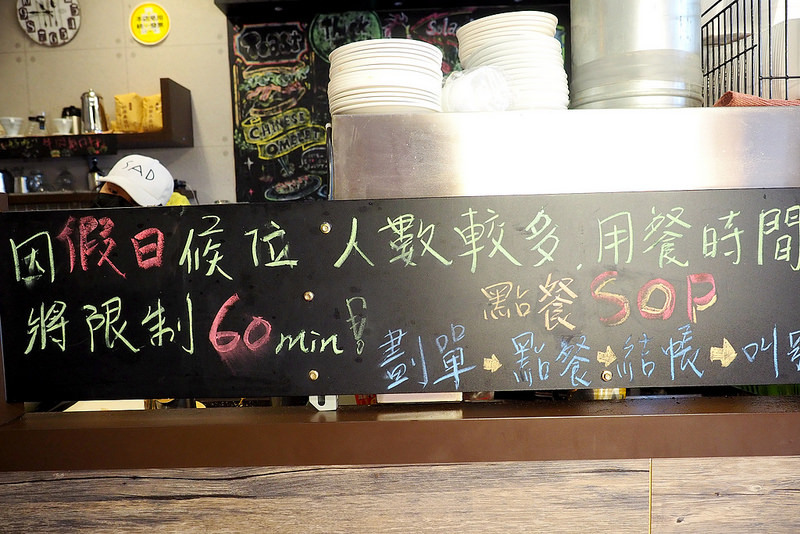 SAD
Toast
CHINESE
OMELET
因假日候位 人數較多,用餐時間
將限制60min!
點餐SOP
劃單→點餐→結帳→叫